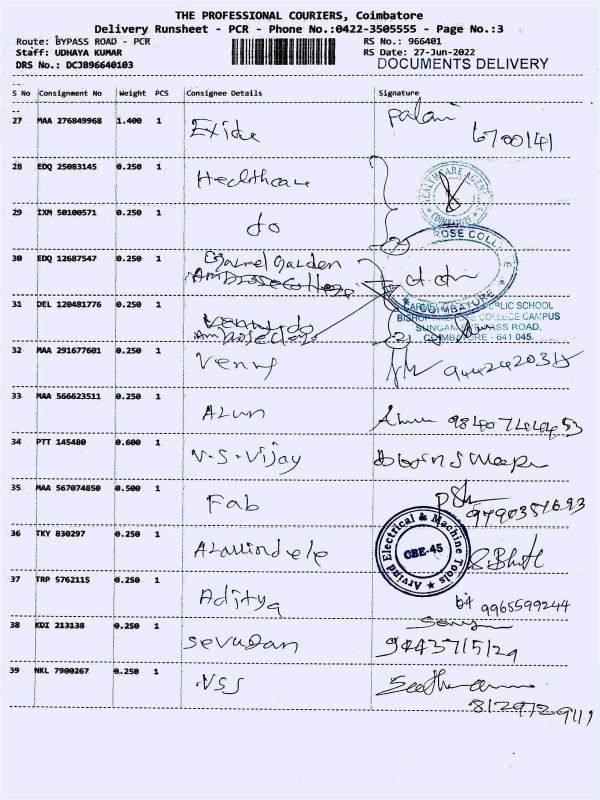 THE PROFESSIONAL COURIERS, Coimbatore
Delivery Runsheet - PCR - Phone No.:0422-3505555 - Page No.:3
Route: BYPASS ROAD - PCR
Staff: UDHAYA KUMAR
DRS No.: DCJB96640103
RS No.: 966401
RS Date: 27-Jun-2022
DOCUMENTS DELIVERY
S No Consignment No Weight PCS Consignee Details Signature
27 MAA 276849968 1.400 1 Exide Palani
6700141
28 EDQ 25083145 0.250 1 Healthcare
29 IXM 50100571 0.250 1 do
30 EDQ 12687547 0.250 1 Carmel Garden
31 DEL 120481776 0.250 1 do
PUBLIC SCHOOL
COLLEGE CAMPUS
COIMBATORE - 641 045.
32 MAA 291677601 0.250 1 Venny
33 MAA 566623511 0.250 1 Alun
34 PTT 145480 0.600 1 V.S.Vijay
35 MAA 567074850 0.500 1 Fab
36 TKY 830297 0.250 1
Arvind Electrical & Machine Tools
CBE-45
37 TRP 5762115 0.250 1 Aditya
9965599244
38 KDI 213138 0.250 1 Sevugan
9443715129
39 NKL 7900267 0.250 1 VSS
8129729111